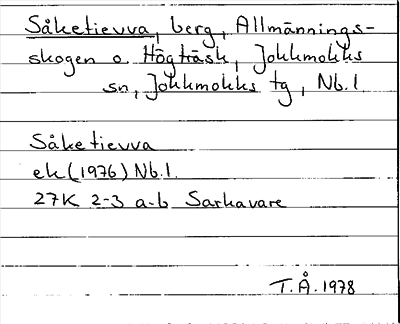 Såketievva, berg, Allmännings-
skogen o. Högträsk, Jokkmokks
sn, Jokkmokks tg, Nb.l
Såketievva
ek (1976) Nb.l.
27K 2-3 a-b Sarkavare
T.Å. 1978